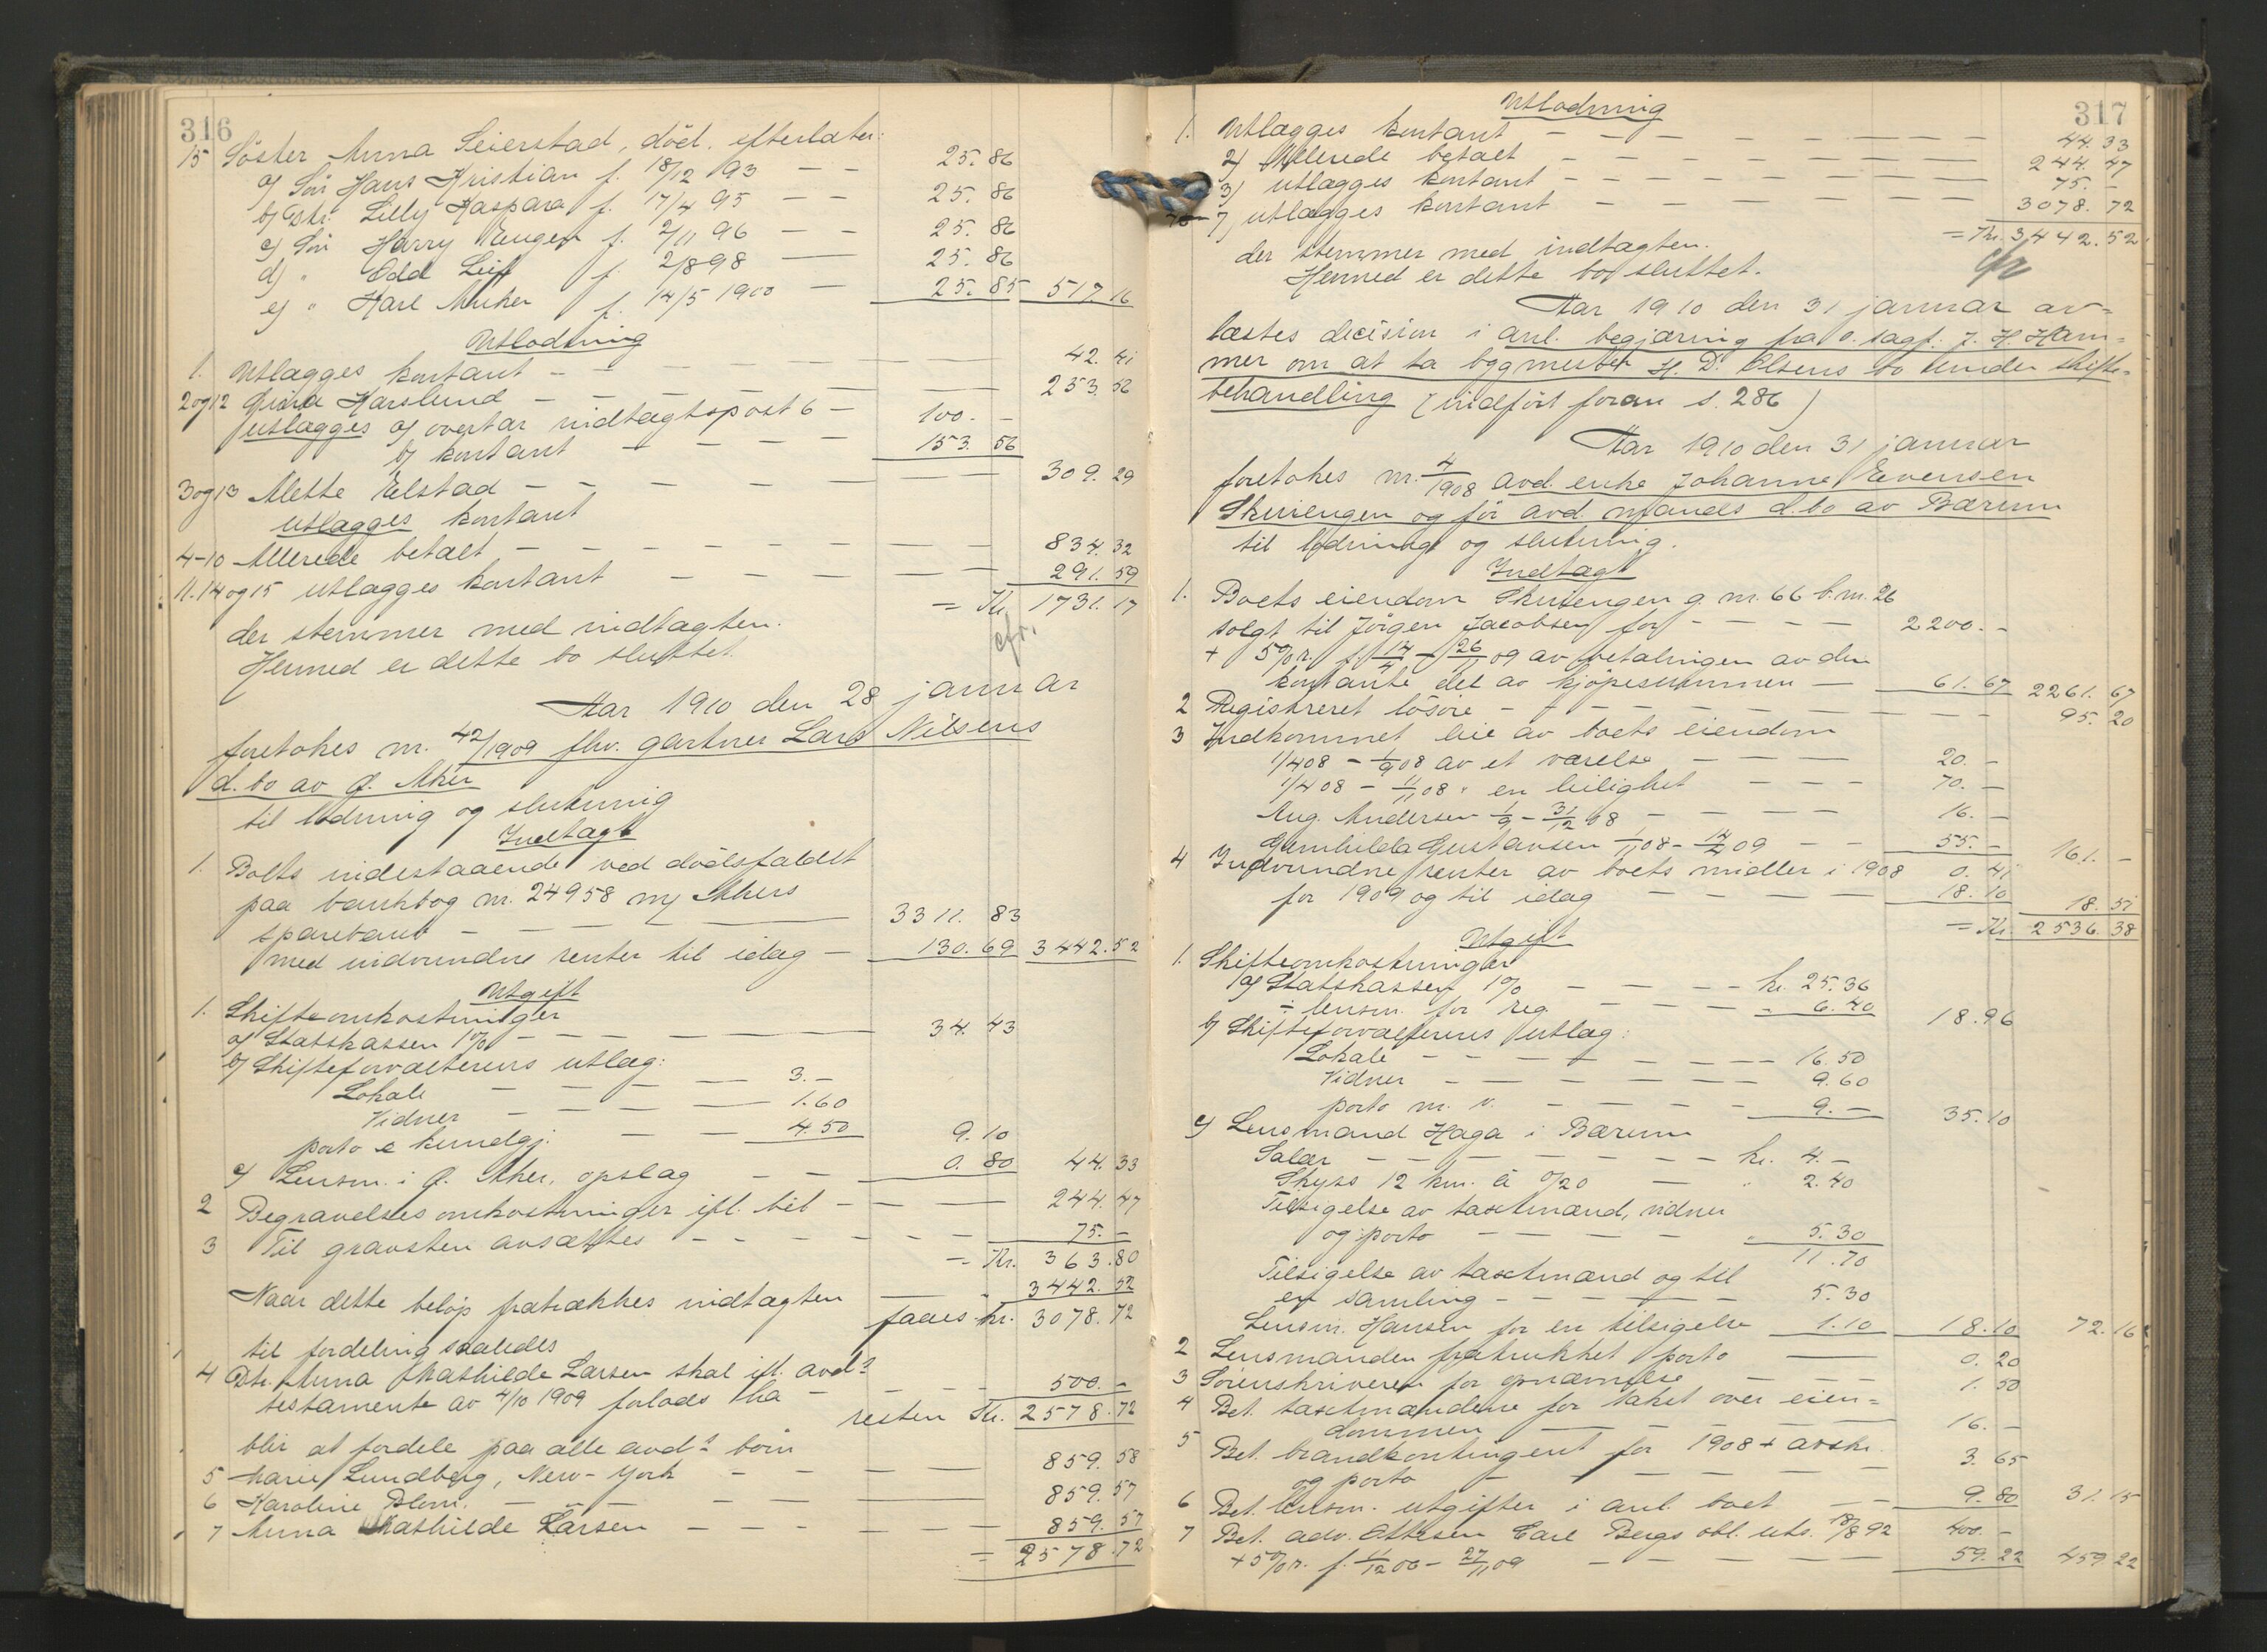 316
15 Söster Anna Seierstad, död, efterlater:
a) Sön Hans Kristian f. 18/12 93 - - 25.86
b) Dtr. Lilly Kaspara f. 17/4 95 - - 25.86
c) Sön Harry Eugen f. 2/11 96 - - 25.86
d) " Odd Leif f. 2/8 98 - 25.86
e) " Karl Anker f. 14/5 1900 - 25.85 517.16
Utlodning
1. Utlægges kontant - - - 42.41
2 og 12 Harslund - - - 253.56
utlægges a) overtar indtægtspost 6 - 100.-
b) kontant - - - 153.56
3 og 13 Mette Elstad - - - 309.29
utlægges kontant
4-10 Allerede betalt - - - 834.32
11. 14 og 15 utlægges kontant - - - 291.59
= Kr. 1731.17
der stemmer med indtægten.
Hermed er dette bo sluttet.
Aar 1910 den 28 januar
foretokes nr. 42/1909 fhv. gartner Lars Nilsens
d. bo av Ø. Aker
til lodning og slutning
Indtægt
1. Boets indestaaende ved dödsfaldet
paa bankbog nr. 24958 ny Akers
sparebank - - - 3311.83
med indvundne renter til idag - 130.69 3442.52
Utgift
1. Skifteomkostninger
a) Statskassen 1% - - - 34.43
b) Skifteforvalterens utlæg:
Lokale - - - 3.-
Vidner - - - 1.60
porto & kundgj. - - 4.50 9.10
c) Lensm. i Ø. Aker, opslag - - 0.80 44.33
2 Begravelsesomkostninger ifl. bil - - - 244.47
3 Til gravsten avsættes - - - 75.-
= Kr. 363.80
Naar dette beløp fratrækkes indtægten - " 3442.52
faaes kr. 3078.72
til fordeling saaledes
4 Dtr. Anna Mathilde Larsen skal ifl. avd.s
testamente av 4/10 1909 forlods ha - - - 500.-
resten Kr. 2578.72
blir at fordele paa alle avd.s börn
5 Marie Lundberg, New-York - - - 859.58
6 Karoline Blom. - - - 859.57
7 Anna Mathilde Larsen - - - 859.57
= 2578.72
317
Utlodning
1. Utlægges kontant - - - 44.33
2) Allerede betalt - - - 244.47
3) utlægges kontant - - - 75.-
7, utlægges kontant - - - 3078.72
= Kr. 3442.52
der stemmer med indtægten.
Hermed er dette bo sluttet.
Aar 1910 den 31 januar av-
læstes decision i anl. begjæring fra o. sagf. J. H. Ham-
mer om at ta byggmester H. D. Olsens bo under skifte-
behandling (indfört foran s. 286)
Aar 1910 den 31 januar
foretokes nr. 4/1908 avd. enke Johanne Evensen
Skuiengen og för avd. mands d.bo av Bærum
til lodning og slutning.
Indtægt
1. Boets eiendom Skuiengen g. nr. 66 b. nr. 26
solgt til Jörgen Jacobsen for - - - 2200.-
+ 5% r. f. 14/4 - 26/11 09 av betalingen av den
kontante del av kjöpesummen - 61.67 2261.67
2 Registreret lösöre - - - 95.20
3 Indkommet leie av boets eiendom
1/4 08 - 1/9 08 av et værelse - - - 20.-
1/4 08 - 1/11 08 " en leilighet - - - 70.-
Aug. Andersen 1/9 - 31/12 08 - - - 16.-
Gunhilda Gustavsen 1/11 08 - 14/4 09 - - 55.- 161.-
4 Indvundne renter av boets midler i 1908 0.41
for 1909 og til idag - - - 18.10 18.51
= Kr. 2536.38
Utgift
1. Skifteomkostninger
a) Statskassen 1% - - - kr. 25.36
÷ lensm. for reg. - - - " 6.40 18.96
b) Skifteforvalterens utlæg:
Lokale - - - 16.50
Vidner - - - 9.60
porto m. v. - - - 9.- 35.10
c) Lensmand Haga i Bærum
Salær - - - kr. 4.-
Skyss 12 km. à 0/20 - " 2.40
Tilsigelse av taxtmænd, vidner
og porto - - - " 5.30
11.70
Tilsigelse av taxtmænd og til
en samling - - - 5.30
Lensm. Hansen for en tilsigelse 1.10 18.10 72.16
2 Lensmanden fratrukket porto - 0.20
3 Sorenskriveren for opnævnelse - - - 1.50
4 Bet. taxtmændene for takst over eien-
dommen - - - 16.-
5 Bet. brandkontingent for 1908 + avskr.
og porto - - - 3.65
6 Bet. lensm. utgifter i anl. boet - - 9.80 31.15
7 Bet. adv. Ottesen Carl Bergs obl. uts. 18/8 92 400.-
+ 5% r. f. 11/12 06 - 27/11 09 - - - 59.22 459.22